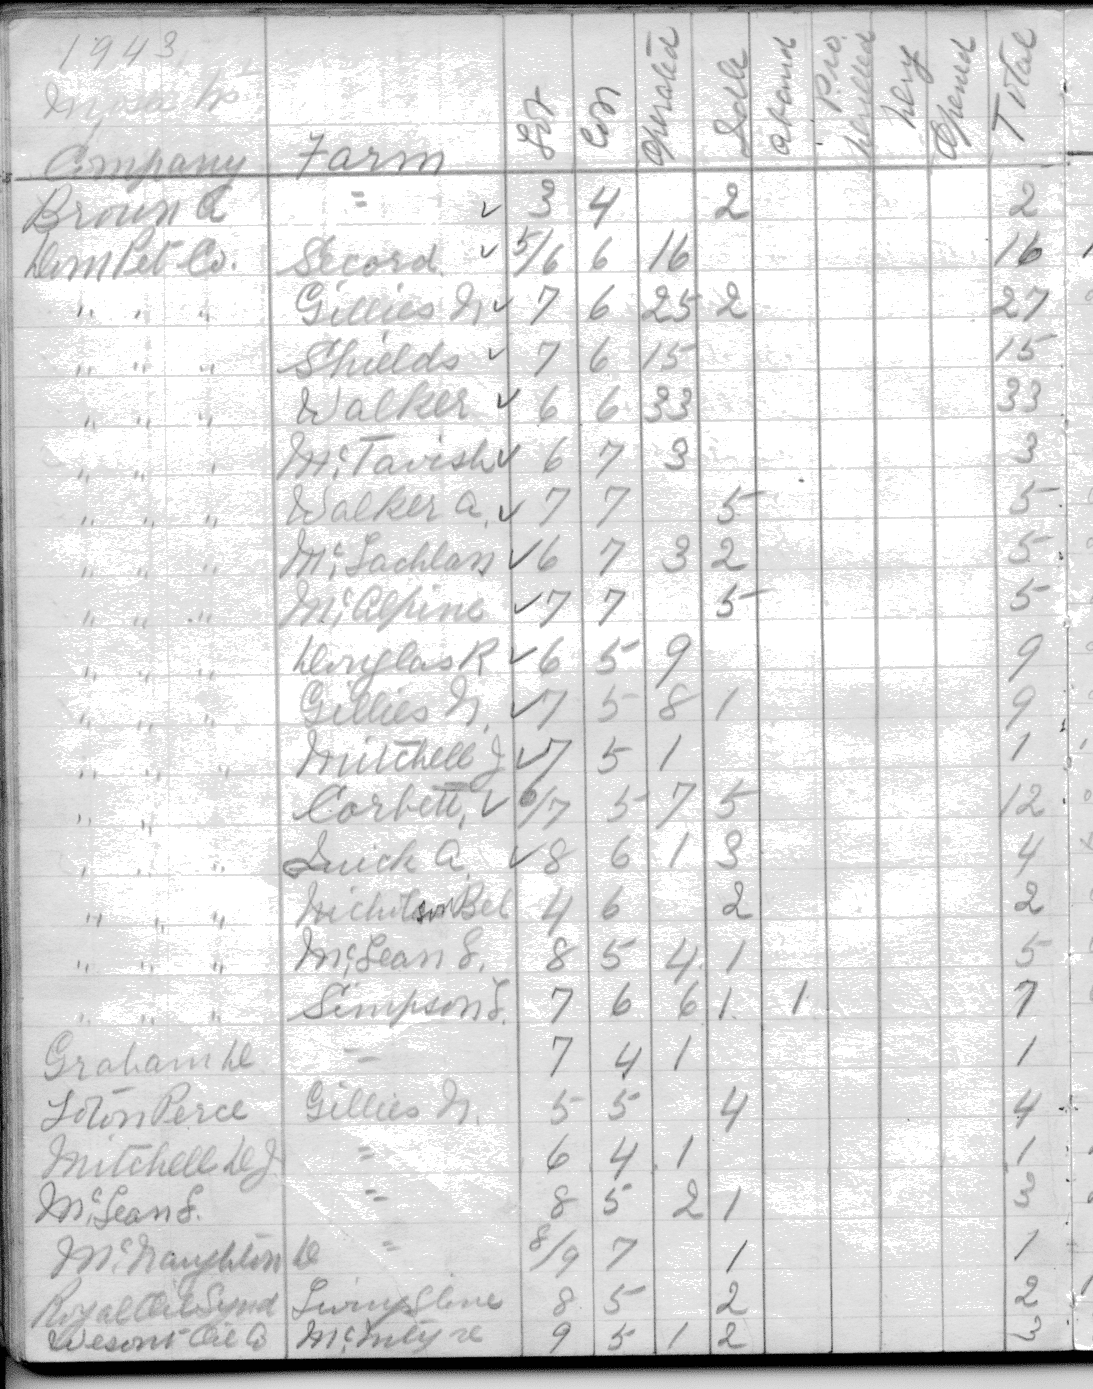 1943
Mosa Tp
Company Farm Lot Con Operated Idle Aband Pro. Drilled Dry Opened Total
Brown A " ✓ 3 4 2 2
Dom Pet Co. Secord ✓ 5/6 6 16 16
" " " Gillies N ✓ 7 6 25 2 27
" " " Shields ✓ 7 6 15 15
" " " Walker ✓ 6 6 33 33
" " " McTavish ✓ 6 7 3 3
" " " Walker A. ✓ 7 7 5 5
" " " McLachlan ✓ 6 7 3 2 5
" " " McAlpine ✓ 7 7 5 5
" " " Douglas R ✓ 6 5 9 9
" " " Gillies N. ✓ 7 5 8 1 9
" " " Mitchell J ✓ 7 5 1 1
" " Corbett, ✓ 6/7 5 7 5 12
" " " Quick A. ✓ 8 6 1 3 4
" " " Nicholson Bel 4 6 2 2
" " " McLean S. 8 5 4 1 5
" " " Simpson S. 7 6 6 1 1 7
Graham D " 7 4 1 1
Loton Perce Gillies N. 5 5 4 4
Mitchell D J " 6 4 1 1
McLean S. " 8 5 2 1 3
McNaughton D " 8/9 7 1 1
Royal Oil Synd Livingstone 8 5 2 2
Oil Co McIntyre 9 5 1 2 3